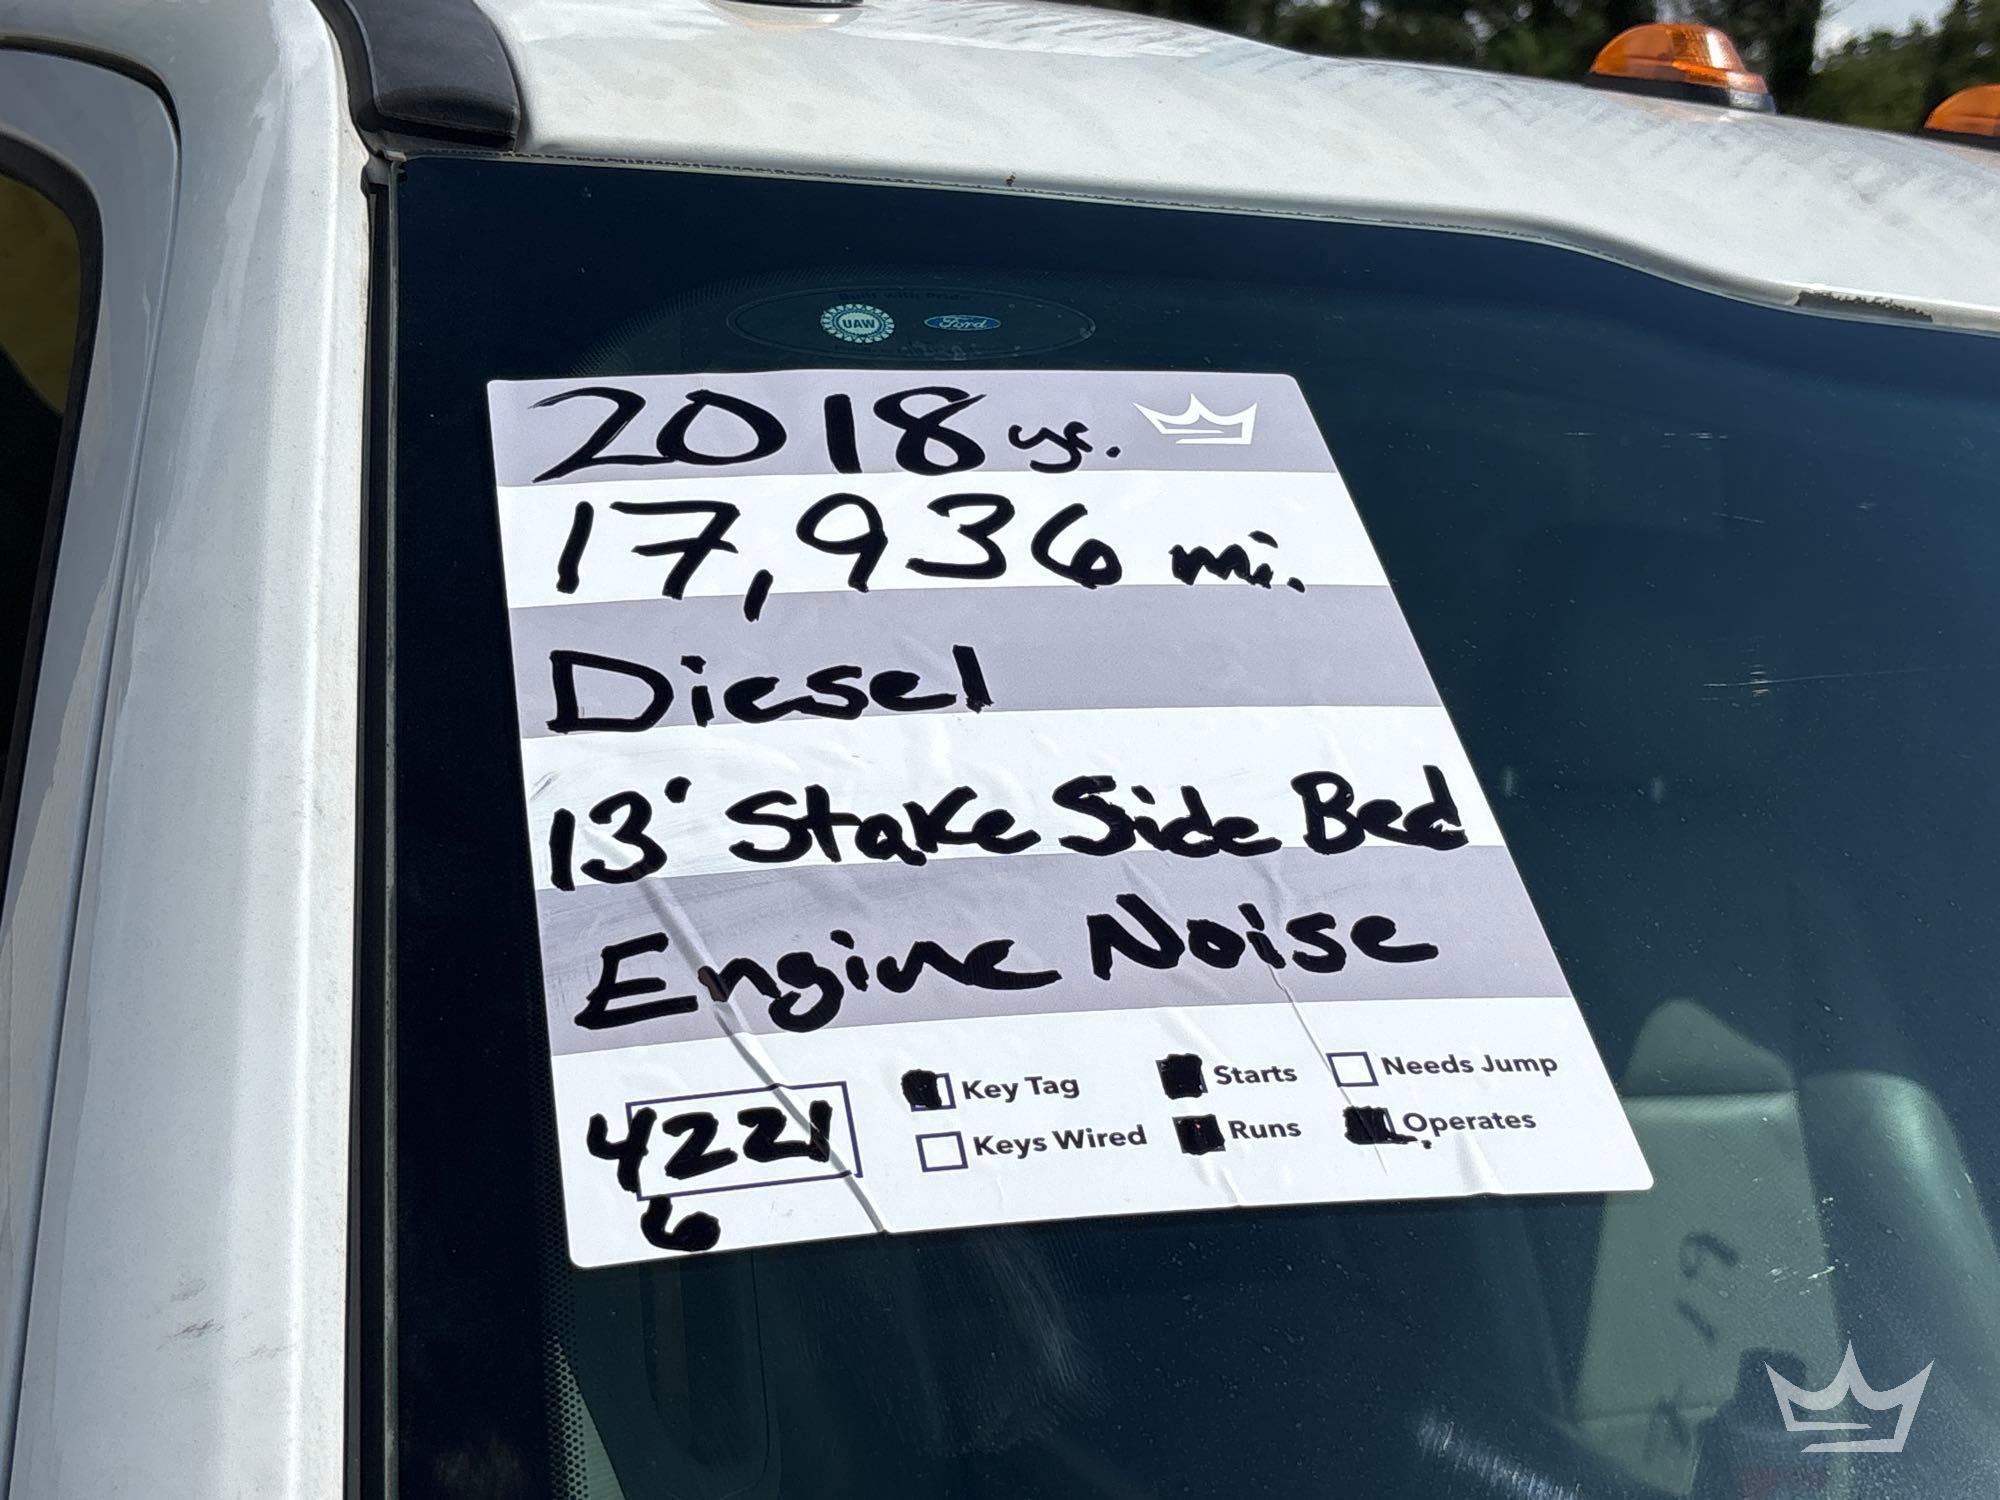 Built with Pride
UAW Ford
2018 yr.
17,936 mi.
Diesel
13' Stake Side Bed
Engine Noise
Key Tag Starts Needs Jump
Keys Wired Runs Operates
4221
6
19